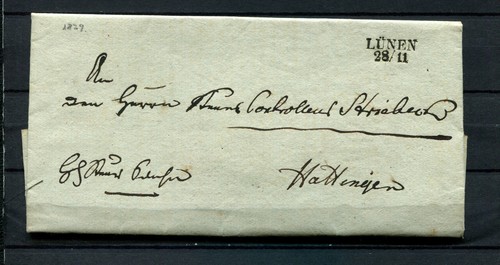 1827.
LÜNEN
28/11
An
den Herrn Steuer Controlleur Striebeck
Hattingen